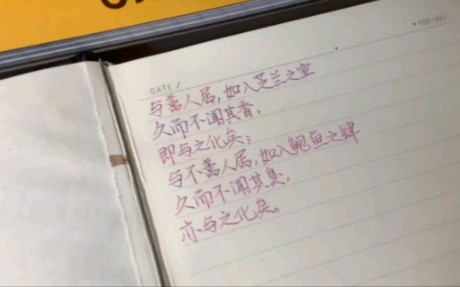 DATE /
与善人居，如入芝兰之室
久而不闻其香，
即与之化矣；
与不善人居，如入鲍鱼之肆
久而不闻其臭，
亦与之化矣。